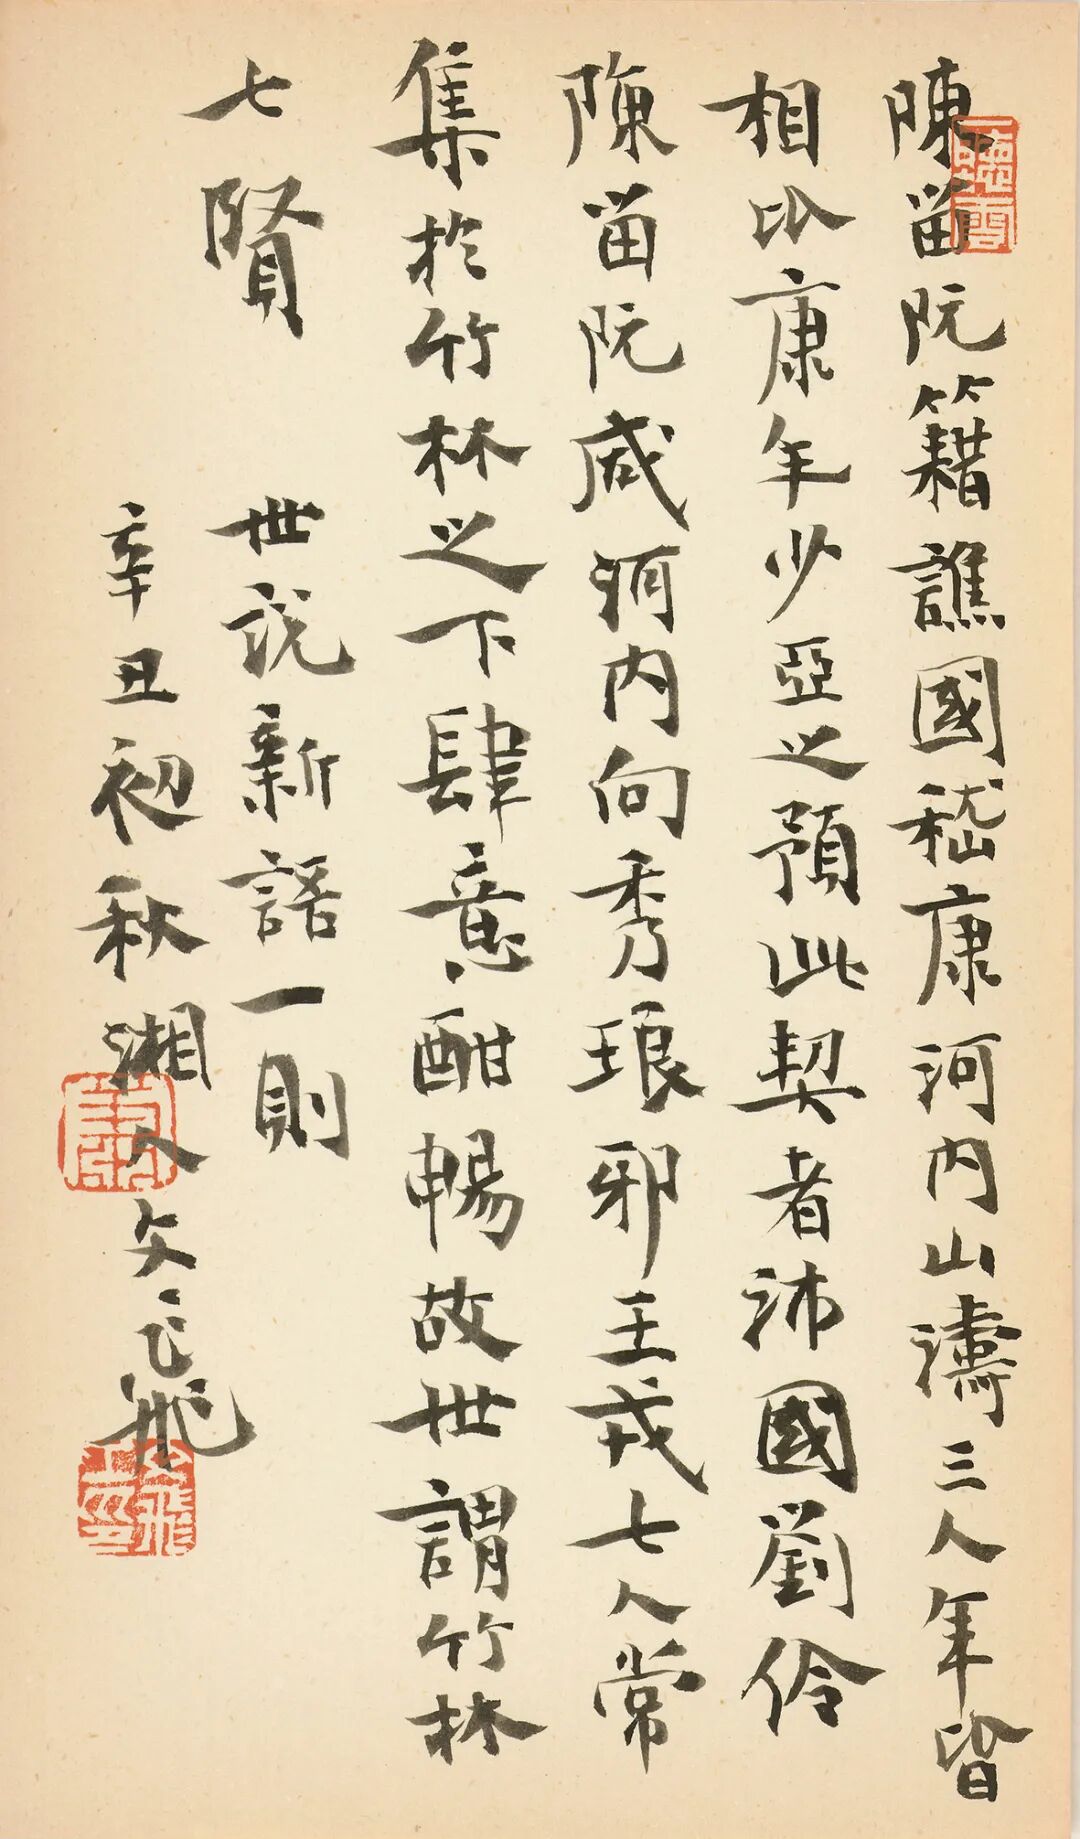 陳留阮籍譙國嵇康河内山濤三人年皆
相比康年少亞之預此契者沛國劉伶
陳留阮咸河内向秀琅邪王戎七人常
集於竹林之下肆意酣暢故世謂竹林
七賢
世説新語一則
辛丑初秋湘人文飛